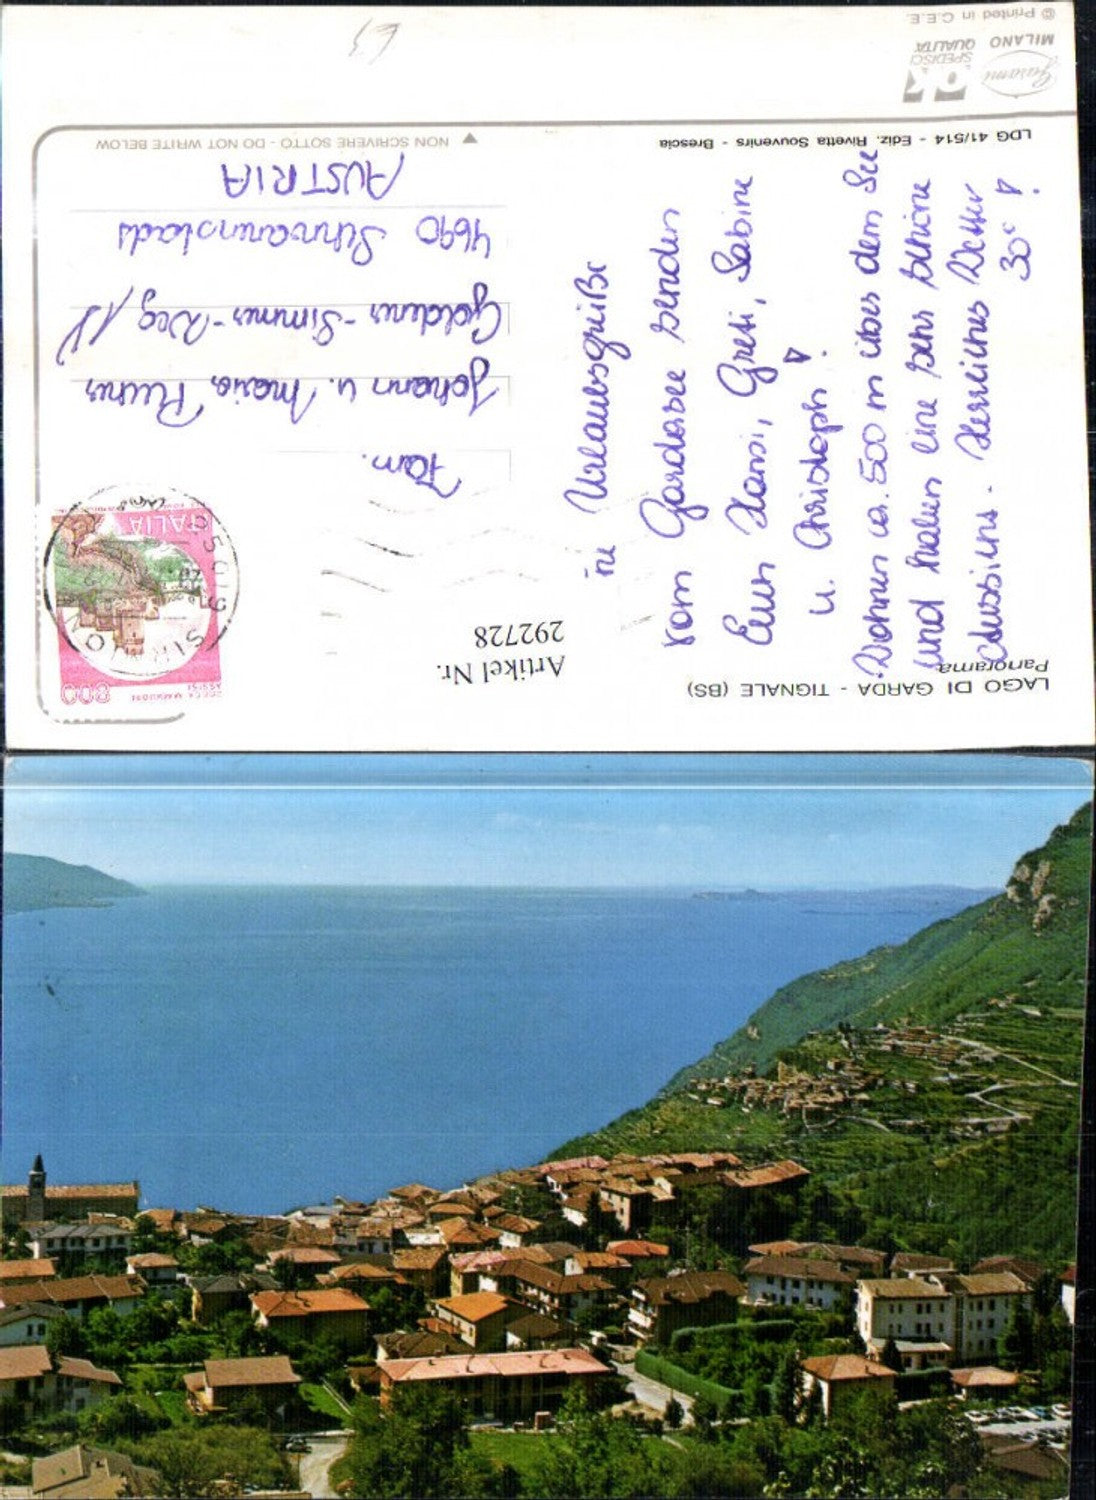 LAGO DI GARDA - TIGNALE (BS)
Panorama
Artikel Nr.
292728
ROCCA MAGGIORE
ASSISI
800
ITALIA
SIRMIONE
25019
die Urlaubsgrüße
vom Gardasee senden
Euch Hansi, Greti, Sabine
u. Christoph!
Wohnen ca. 500 m über dem See
und haben eine sehr schöne
Aussicht. Herrliches Wetter
30° !
Fam.
Johann u. Maria
Goldener-Simmer-Weg
4690 Schwanenstadt
AUSTRIA
NON SCRIVERE SOTTO - DO NOT WRITE BELOW
LDG 41/514 - Ediz. Rivetta Souvenirs - Brescia
Garami
MILANO
OK
SPEDISCI
QUALITA'
© Printed in C.E.E.